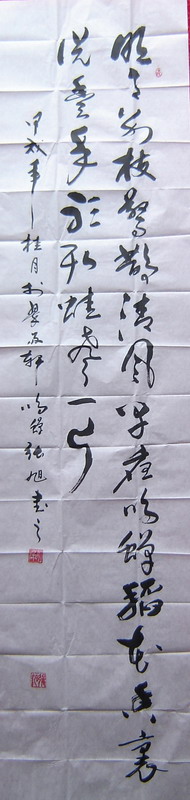 明月别枝惊鹊清风半夜鸣蝉稻花香里
说丰年听取蛙声一片
甲戌年桂月于翠友轩鸣锡张旭书之